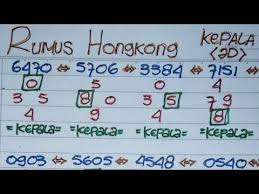 Rumus Hongkong KePALA
<2D>
6470 ⇔ 5706 ⇔ 3384 ⇔ 7151 ⇔
0 5 0 4
3 8 0 3 5 79
4 9 4 8
=KePALA= =KePALA= =KePALA= =KePALA=
0903 ⇔ 5605 ⇔ 4548 ⇔ 0540 ⇔